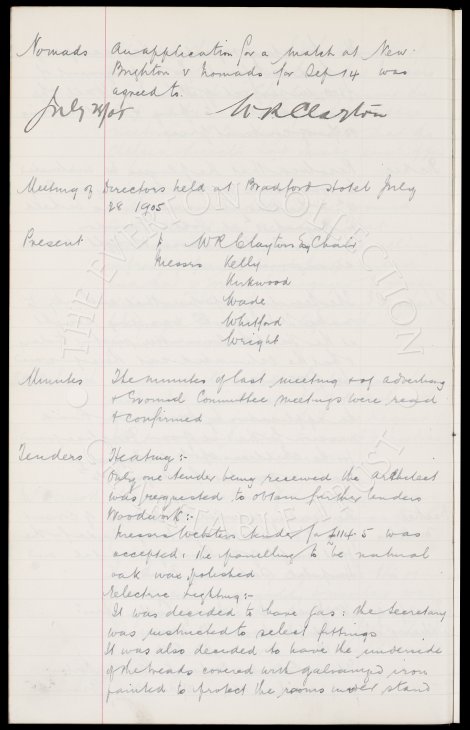 Nomads An application for a match at New
Brighton v Nomads for Sep 14 was
agreed to.
July 28/05 W R Clayton
Meeting of Directors held at Bradford Hotel July
28 1905
Present W R Clayton Esq Chair
Messrs Kelly
Kirkwood
Wade
Whitford
Wright
Minutes The minutes of last meeting & of advertising
& Ground Committee meetings were read
& confirmed
Tenders Heating :-
Only one tender being received the architect
was requested to obtain further tenders
Woodwork :-
Messrs Websters tender for £114.5 was
accepted : the panelling to be natural
oak wax polished
Electric Lighting :-
It was decided to have gas : the Secretary
was instructed to select fittings
It was also decided to have the underside
of the treads covered with galvanized iron
painted to protect the rooms under stand
THE EVERTON COLLECTION
CHARITABLE TRUST